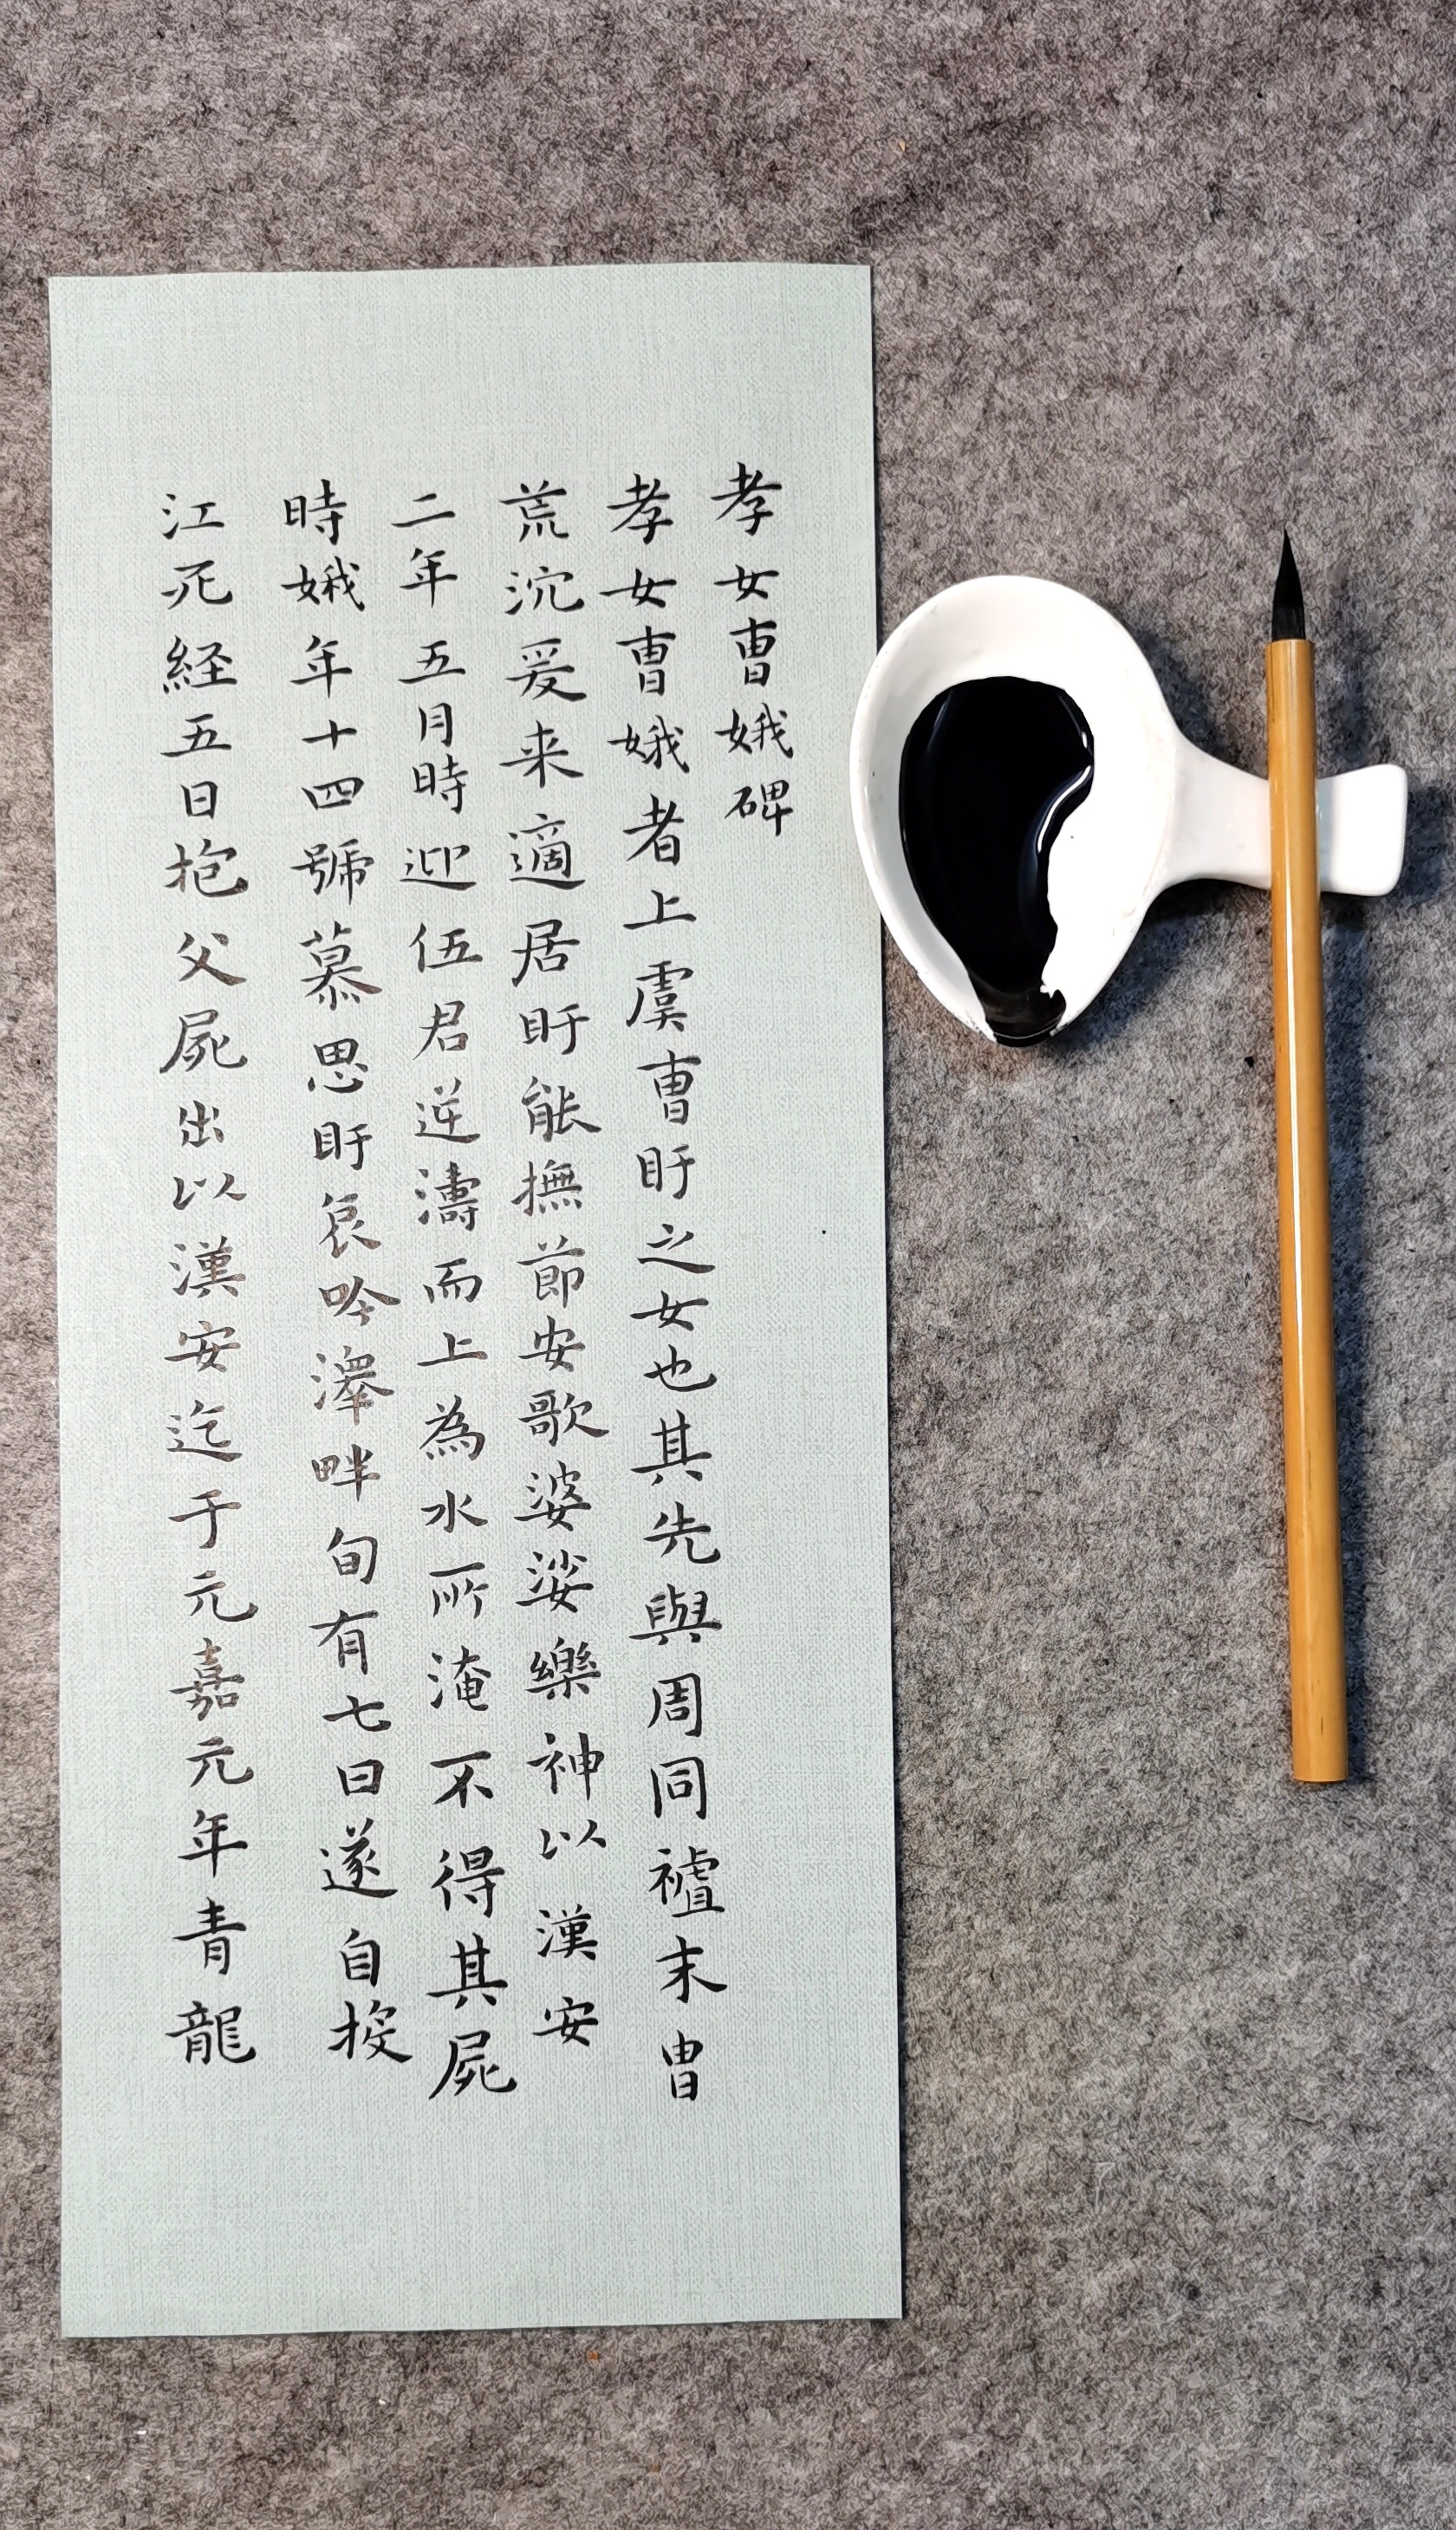 孝女曹娥碑
孝女曹娥者上虞曹盱之女也其先與周同禇末胄
荒沉爰来適居盱能撫節安歌婆娑樂神以漢安
二年五月時迎伍君逆濤而上為水所淹不得其屍
時娥年十四號慕思盱哀吟澤畔旬有七日遂自投
江死経五日抱父屍出以漢安迄于元嘉元年青龍